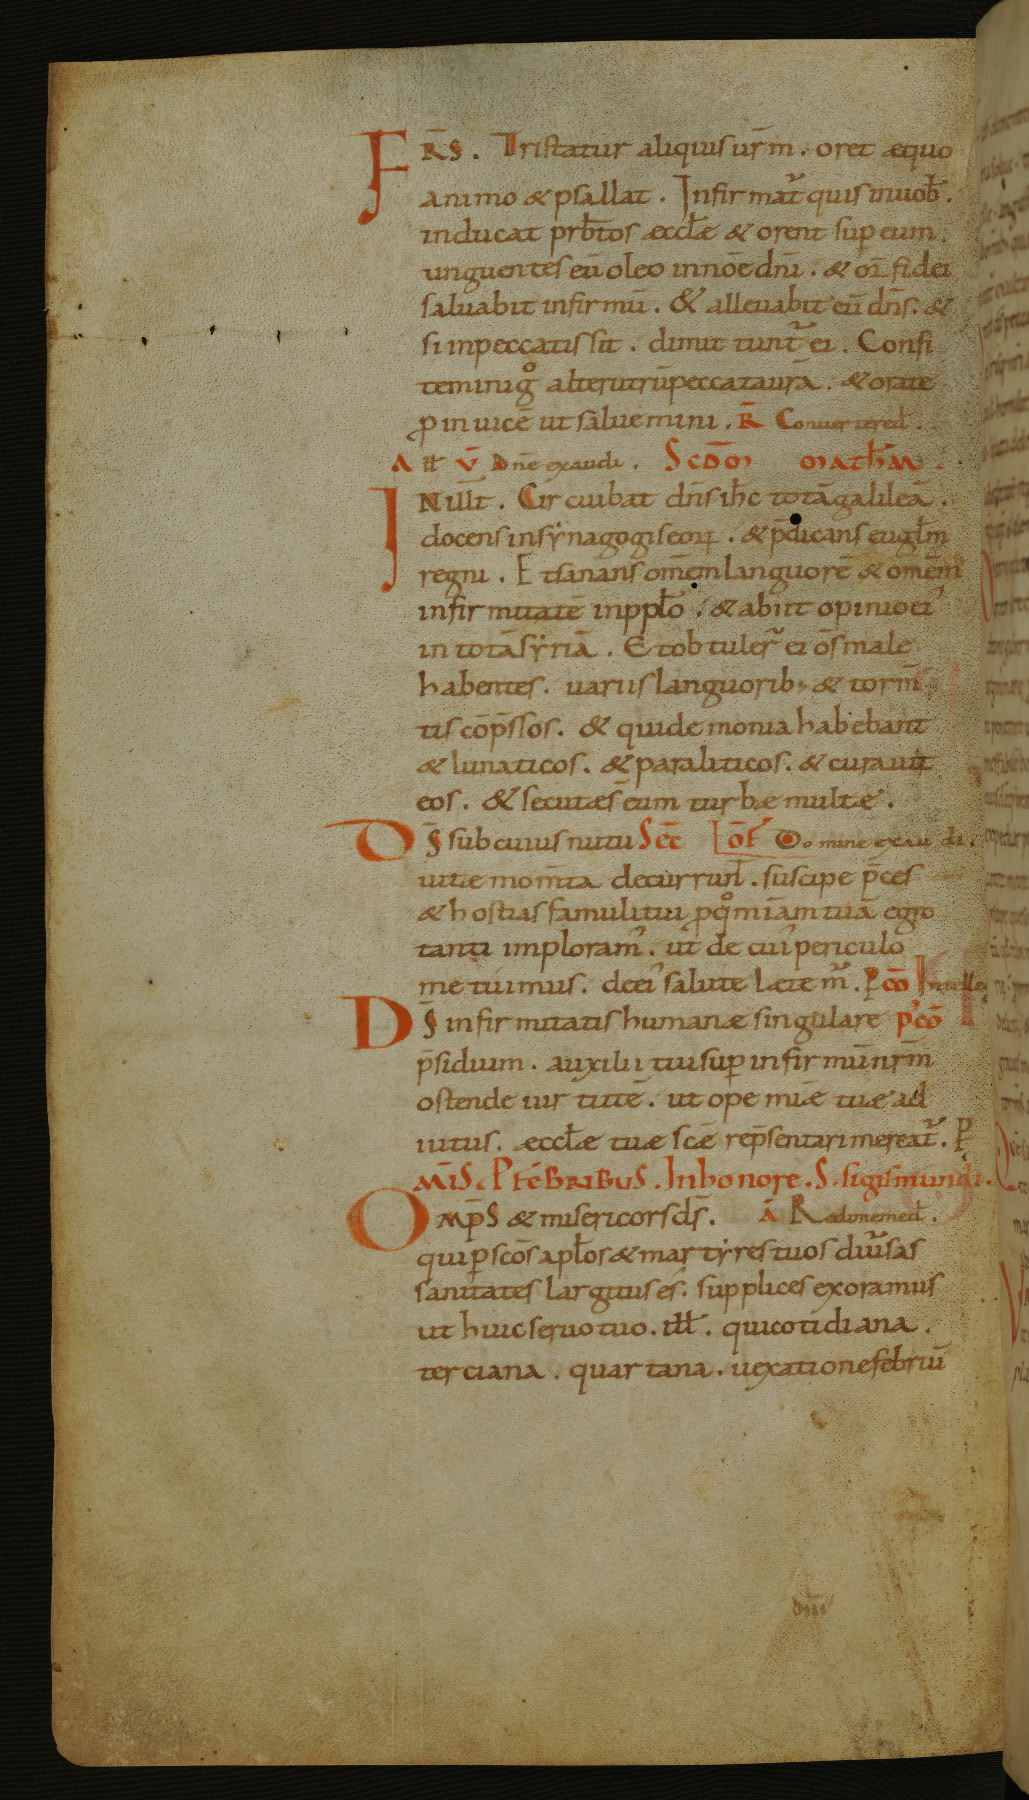 FR̄S. Tristatur aliquis ur̄m. oret æquo
animo & psallat. Infirmat̄ quis inuob̄.
inducat prb̄tos æccl̄æ & orent sup eum.
unguentes eū oleo innoē dn̄i. & or̄ fidei
saluabit infirmū. & alleuabit eū dn̄s. &
si inpeccatis sit. dimittunt̄ ei. Confi
temini gͦ alterutrū peccata ur̄a. & orate
p inuicē ut saluemini. R̄ Conuertered̄.
A ll̄ V̄ Dn̄e exaudi. Scd̄m math̄m.
INill̄t. Circuibat dn̄s ih̄c totā galileā.
docens insẏnagogis eoꝝ. & p̄dicans eugl̄m
regni. Et sanans om̄em languorē & om̄em
infirmitatē inppl̄o. & abiit opinio ei'
in totā sẏriā. Et obtuler̄ ei om̄s male
habentes. uariis languorib; & torm̄
tis cōp̄ssos. & qui demonia habebant
& lunaticos. & paraliticos. & curauit
eos. & secutæ s̄ eum turbæ multæ.
Ds̄ sub cuius nutu Sec̄ Domine exaudi.
uitæ mom̄ta decurrunt. suscipe p̄ces
& hostias famuli tui p qͦ mīam tuā egro
tanti imploram'. ut de cui' periculo
metuimus. de ei' salute læte m̄. P cō Intellege
Ds̄ infirmitatis humanæ singulare p'cō
p̄sidium. auxilii tui sup infirmū nr̄m
ostende uirtutē. ut ope mīæ tuæ ad
iutus. æccl̄æ tuæ sc̄æ rep̄sentari mereat̄. P
MIS. P FEBRIBUS. In honore. S. sigismundi.
OMP̄S & misericors ds̄. A Redonemed̄.
qui p scōs apl̄os & martẏres tuos diu̅sas
sanitates largitus es. supplices exoramus
ut huic seruo tuo. ill̄. qui cotidiana.
terciana. quartana. uexatione febriū